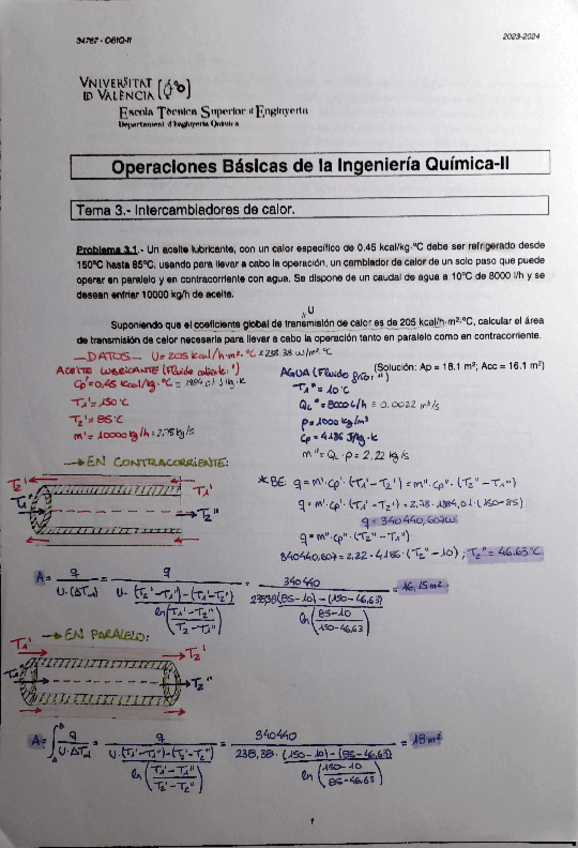 34767 - OBIQ-II
2023-2024
VNIVERSITAT
ID VALÈNCIA
Escola Tècnica Superior d'Enginyeria
Departament d'Enginyeria Química
Operaciones Básicas de la Ingeniería Química-II
Tema 3.- Intercambiadores de calor.
Problema 3.1.- Un aceite lubricante, con un calor específico de 0,45 kcal/kg·ºC debe ser refrigerado desde
150ºC hasta 85ºC, usando para llevar a cabo la operación, un cambiador de calor de un solo paso que puede
operar en paralelo y en contracorriente con agua. Se dispone de un caudal de agua a 10ºC de 8000 l/h y se
desean enfriar 10000 kg/h de aceite.
U
Suponiendo que el coeficiente global de transmisión de calor es de 205 kcal/h·m²·ºC, calcular el área
de transmisión de calor necesaria para llevar a cabo la operación tanto en paralelo como en contracorriente.
(Solución: Ap = 18.1 m²; Acc = 16.1 m²)
— DATOS — U = 205 kcal/h·m²·ºC = 238.38 W/m²·ºC
ACEITE LUBRICANTE (Fluido caliente ')
Cp' = 0,45 kcal/kg·ºC = 1884,01 J/kg·K
T1' = 150ºC
T2' = 85ºC
m' = 10000 kg/h = 2,78 kg/s
AGUA (Fluido frío '')
T1'' = 10ºC
QL'' = 8000 l/h = 0.0022 m³/s
ρ = 1000 kg/m³
Cp = 4186 J/kg·K
m'' = QL·ρ = 2.22 kg/s
→ EN CONTRACORRIENTE:
T2' T1'
T1'' T2''
* BE: q = m'·cp'·(T1'-T2') = m''·cp''·(T2''-T1'')
q = m'·cp'·(T1'-T2') = 2,78·1884,01·(150-85)
q = 340440,607 W
q = m''·cp''·(T2''-T1'')
340440,607 = 2,22·4186·(T2''-10) ; T2'' = 46.63ºC
A = q / U·(ΔTml) = q / U·(T2'-T1'')-(T1'-T2'') / ln(T1'-T2'' / T2'-T1'') = 340440 / 238,38(85-10)-(150-46,63) / ln(85-10 / 150-46,63) = 16,15 m²
→ EN PARALELO:
T1' T2'
T1'' T2''
A = ∫ q / U·ΔTml = q / U·(T1'-T1'')-(T2'-T2'') / ln(T1'-T1'' / T2'-T2'') = 340440 / 238,38·(150-10)-(85-46,63) / ln(150-10 / 85-46,63) = 18 m²
1